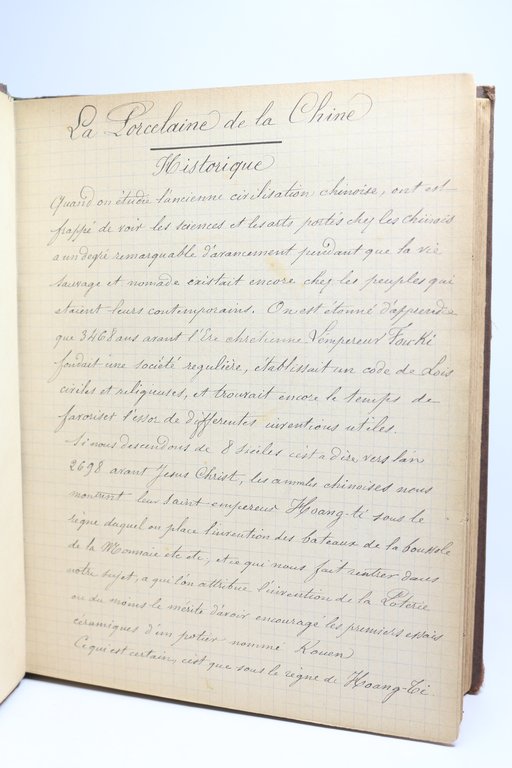 La Porcelaine de la Chine
Historique
Quand on étudie l'ancienne civilisation chinoise, ont est
frappé de voir les sciences et les arts portés chez les chinois
a un degré remarquable d'avancement pendant que la vie
sauvage et nomade existait encore chez les peuples qui
etaient leurs contemporains. On est étonné d'apprendre
que 3468 ans avant l'Ere chrétienne L'empereur Fowki
fondait une société regulière, établissait un code de Lois
civiles et religieuses, et trouvait encore le temps de
favoriser l'essor de differentes inventions utiles.
Si nous descendons de 8 siècles c'est a dire vers l'an
2698 avant Jesus Christ, les annales chinoises nous
montrent leur saint empereur Hoang-ti sous le
règne duquel on place l'invention des bateaux de la boussole
de la Monnaie etc etc, et ce qui nous fait rentrer dans
notre sujet, a qui l'on attribue l'invention de la Poterie
ou du moins le mérite d'avoir encouragé les premiers essais
céramiques d'un potier nommé Kouen
Ce qui est certain, c'est que sous le règne de Hoang-ti